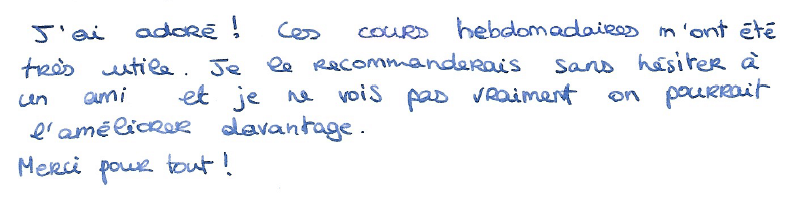 J'ai adoré ! Ces cours hebdomadaires m'ont été
très utile. Je le recommanderais sans hésiter à
un ami et je ne vois pas vraiment on pourrait
l'améliorer davantage.
Merci pour tout !